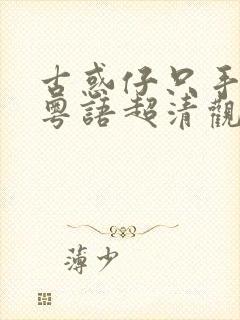 古惑仔只手
粵語超清觀
薄少